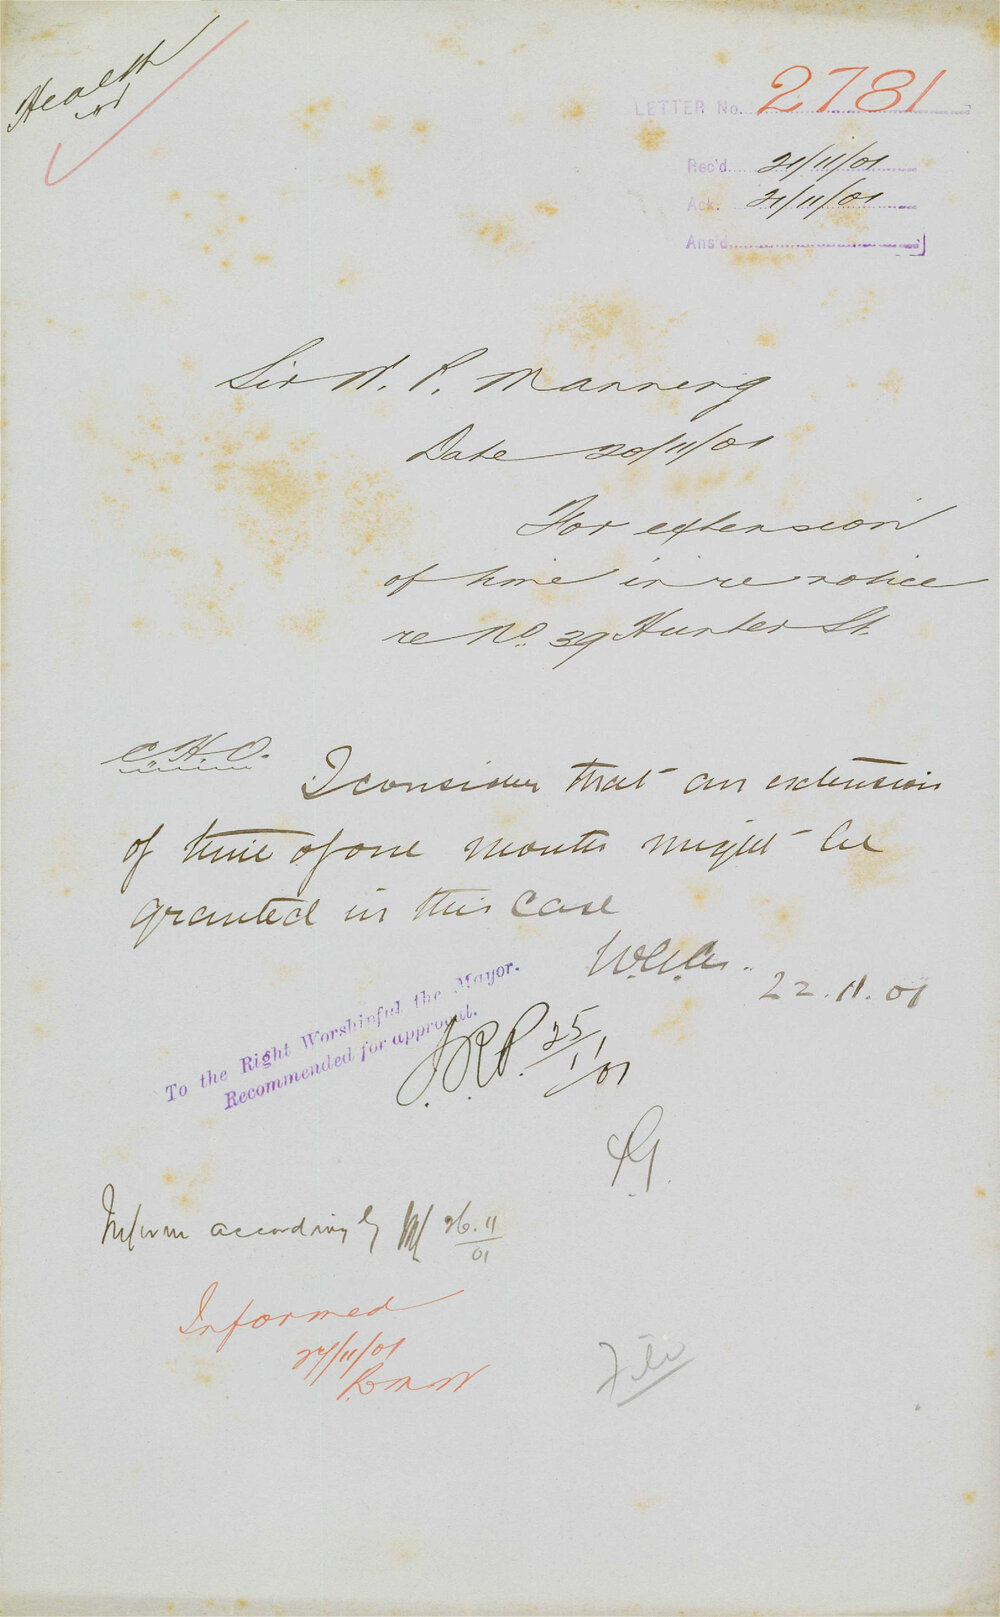 Health
LETTER No. 2781
Rec'd. 21/11/01
Ack. 21/11/01
Ans'd
Sir W. P. Manning
Date 20/11/01
For extension
of time in re notice
re No. 39 Hunter St.
C.H.O.
I consider that an extension
of time of one month might be
granted in this case
22.11.01
To the Right Worshipful the Mayor.
Recommended for approval.
J.R.P. 25/11/01
Inform accordingly 26.11/01
Informed
27/11/01
File